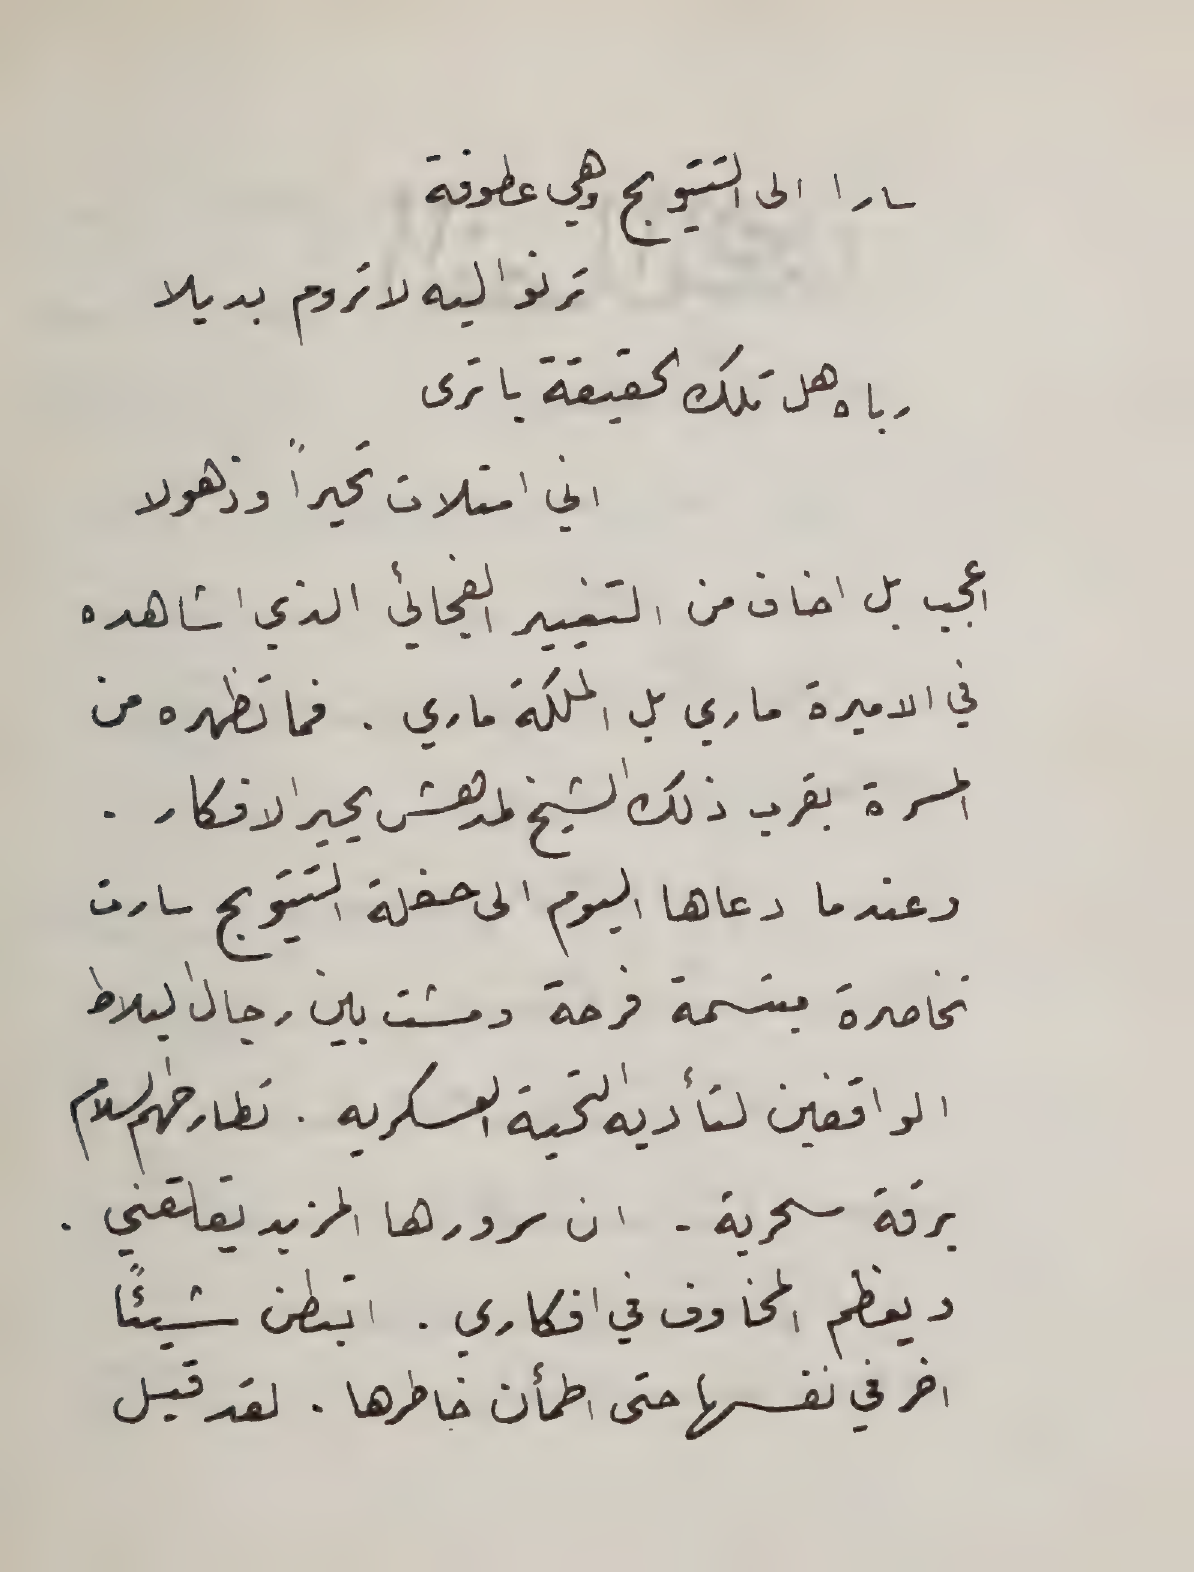 سارا الى التتويج وهي عطوفة
ترنو اليه لا تروم بديلا
رباه هل تلك الحقيقة يا ترى
اني امتلات تحيراً وذهولا
اعجب بل اخاف من التغيير الفجائي الذي اشاهده
في الاميرة ماري بل الملكة ماري . فما تظهره من
المسرة بقرب ذلك الشيخ المدهش يحير الافكار .
وعندما دعاها اليوم الى حفلة التتويج سارت
تخاصرة مبتسمة فرحة ومشت بين رجال البلاط
الواقفين لتأديه التحية العسكريه . تطارحهم السلام
برقة سحرية - ان سرورها المزيد يقلقني .
ويعظم المخاوف في افكاري . اتبطن شيئًا
اخر في نفسها حتى اطمأن خاطرها . لقد قيل